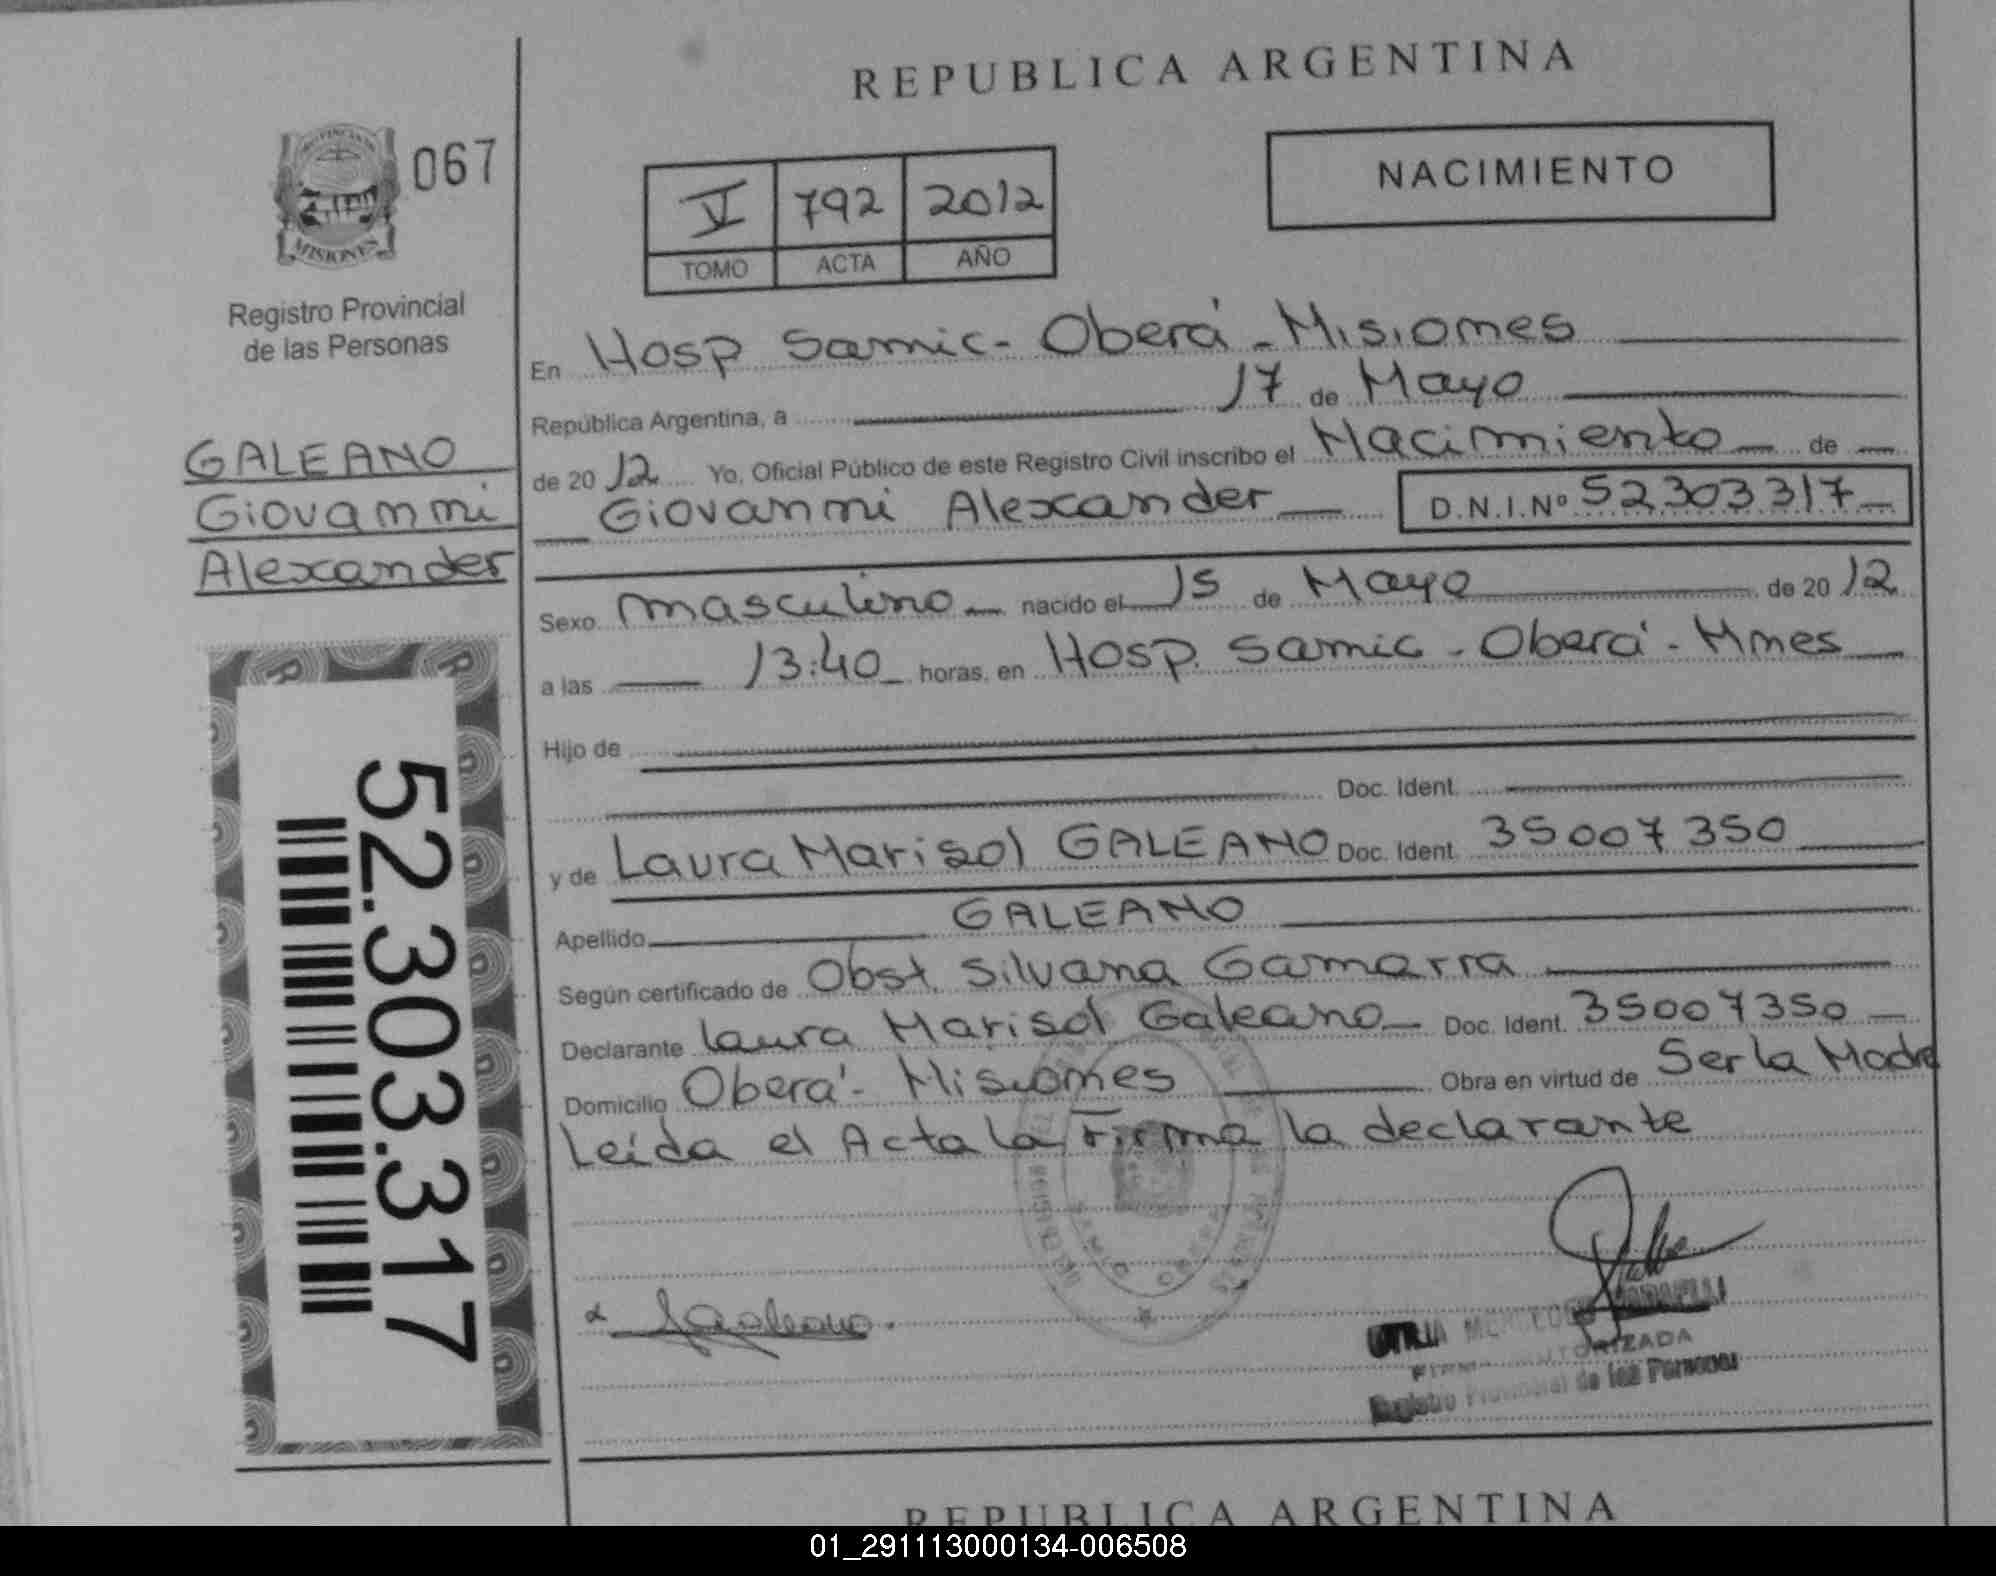 REPUBLICA ARGENTINA
MISIONES
067
Registro Provincial
de las Personas
V 792 2012
TOMO ACTA AÑO
NACIMIENTO
GALEANO
Giovanni
Alexander
52.303.317
En Hosp Samic - Oberá - Misiones
República Argentina, a 17 de Mayo
de 2012 Yo, Oficial Público de este Registro Civil inscribo el Nacimiento de
Giovanni Alexander D.N.I.Nº 52303317
Sexo masculino nacido el 15 de Mayo de 2012
a las 13:40 horas, en Hosp. Samic - Oberá - Mnes
Hijo de
Doc. Ident.
y de Laura Marisol GALEANO Doc. Ident. 35007350
Apellido GALEANO
Según certificado de Obst. Silvana Gamarra
Declarante Laura Marisol Galeano Doc. Ident. 35007350
Domicilio Oberá - Misiones Obra en virtud de Ser la Madre
Leída el Acta la Firma la declarante
AUTORIZADA
Registro Provincial de las Personas
REPUBLICA ARGENTINA
01_291113000134-006508